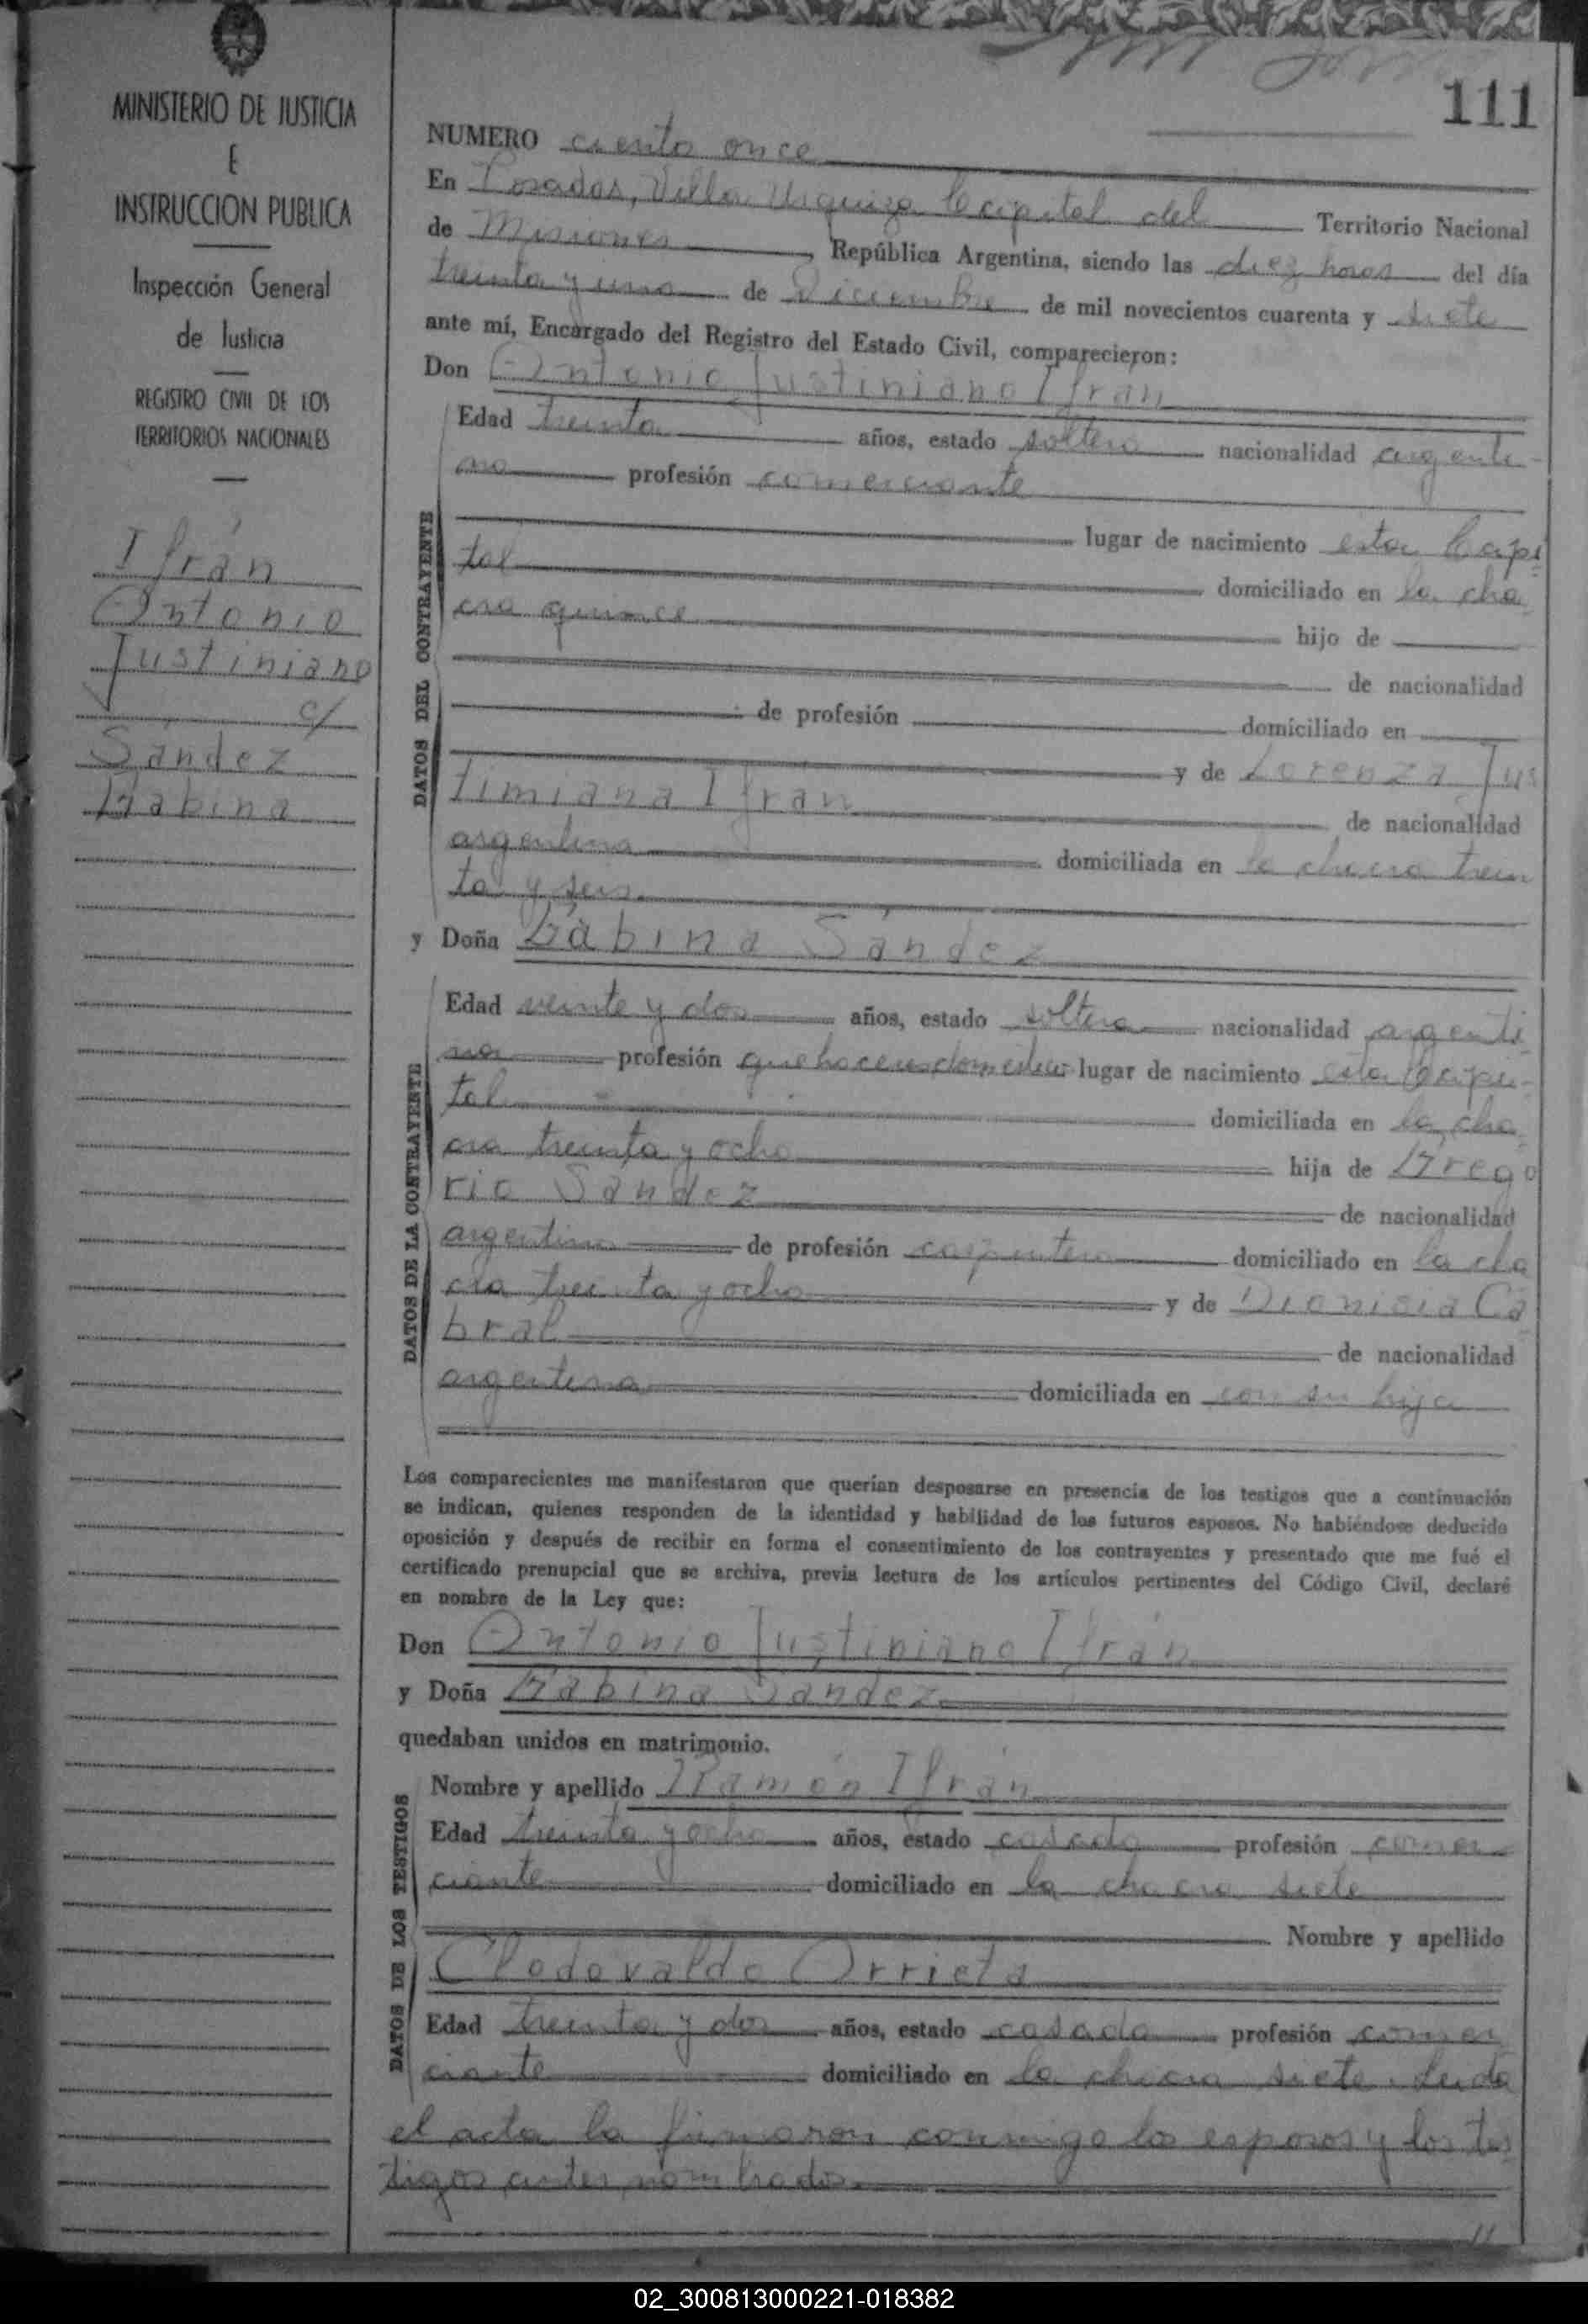 111
MINISTERIO DE JUSTICIA
E
INSTRUCCION PUBLICA
Inspección General
de Justicia
REGISTRO CIVIL DE LOS
TERRITORIOS NACIONALES
Ifrán
Antonio
Justiniano
c/
Sández
Gabina
NUMERO ciento once
En Posadas, Villa Urquiza Capital del Territorio Nacional
de Misiones, República Argentina, siendo las diez horas del día
treinta y uno de Diciembre de mil novecientos cuarenta y siete
ante mí, Encargado del Registro del Estado Civil, comparecieron:
Don Antonio Justiniano Ifrán
DATOS DEL CONTRAYENTE
Edad treinta años, estado soltero nacionalidad argenti-
no profesión comerciante
lugar de nacimiento esta Capi
tal domiciliado en la cha
cra quince hijo de
de nacionalidad
de profesión domiciliado en
y de Lorenza Jus
timiana Ifrán de nacionalidad
argentina domiciliada en la chacra trein
ta y seis
y Doña Gabina Sández
DATOS DE LA CONTRAYENTE
Edad veinte y dos años, estado soltera nacionalidad argenti
na profesión quehaceres domésticos lugar de nacimiento esta Capi-
tal domiciliada en la cha
cra treinta y ocho hija de Grego
rio Sández de nacionalidad
argentino de profesión carpintero domiciliado en la cha
cra treinta y ocho y de Dionisia Ca
bral de nacionalidad
argentina domiciliada en con su hija
Los comparecientes me manifestaron que querían desposarse en presencia de los testigos que a continuación
se indican, quienes responden de la identidad y habilidad de los futuros esposos. No habiéndose deducido
oposición y después de recibir en forma el consentimiento de los contrayentes y presentado que me fué el
certificado prenupcial que se archiva, previa lectura de los artículos pertinentes del Código Civil, declaré
en nombre de la Ley que:
Don Antonio Justiniano Ifrán
y Doña Gabina Sández
quedaban unidos en matrimonio.
DATOS DE LOS TESTIGOS
Nombre y apellido Ramón Ifrán
Edad treinta y ocho años, estado casado profesión comer
ciante domiciliado en la chacra siete
Nombre y apellido
Clodovaldo Orrieta
Edad treinta y dos años, estado casado profesión comer
ciante domiciliado en la chacra siete. Leida
el acta la firmaron conmigo los esposos y los tes
tigos antes nombrados.
02_300813000221-018382